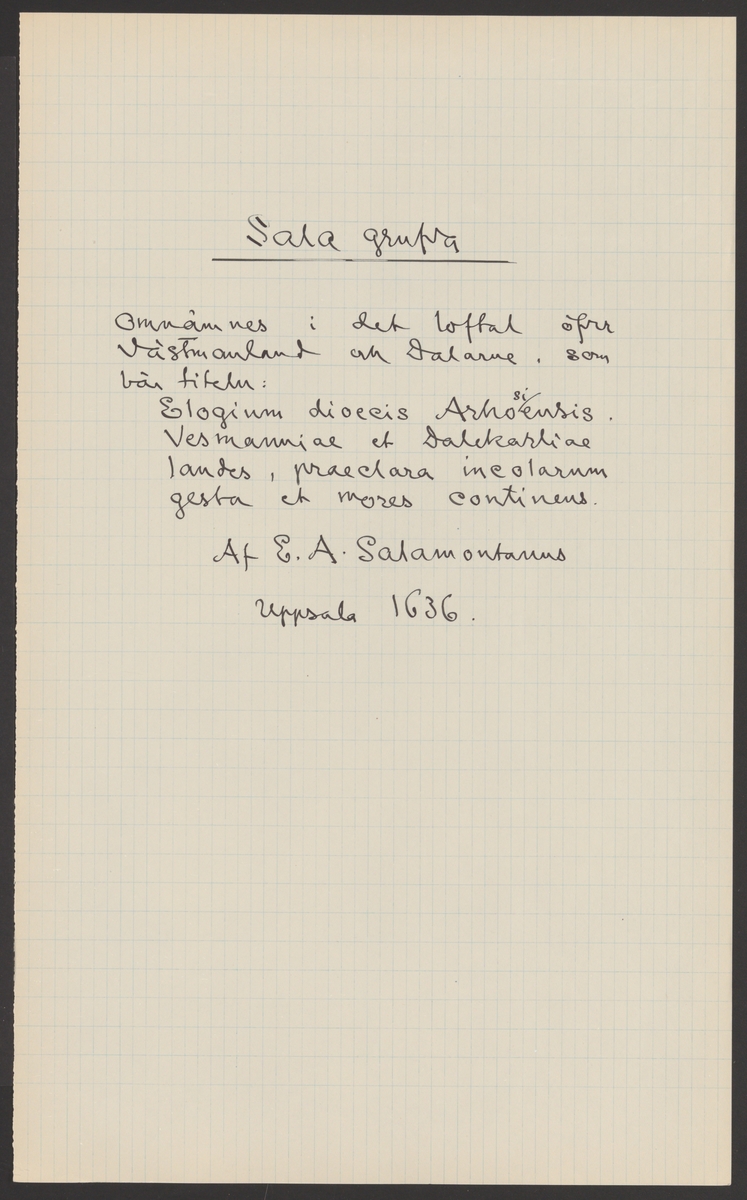 Sala grufva
Omnämnes i det loftal öfver
Västmanland och Dalarne, som
bär titeln:
Elogium dioecis Arhosiensis.
Vesmanniae et Dalekarliae
laudes, praeclara incolarum
gesta et mores continens.
Af E. A. Salamontanus
Uppsala 1636.